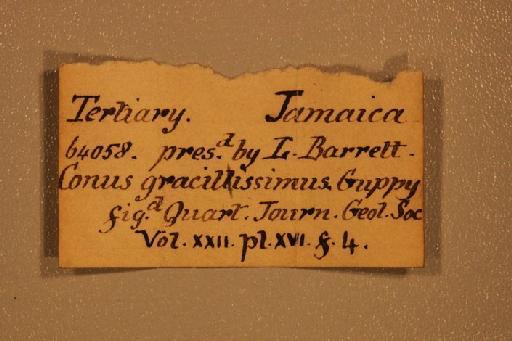 Tertiary. Jamaica
64058. pres.d by L. Barrett.
Conus gracillissimus. Guppy
fig.d Quart. Journ. Geol. Soc
Vol. XXII. pl. XVI. f. 4.